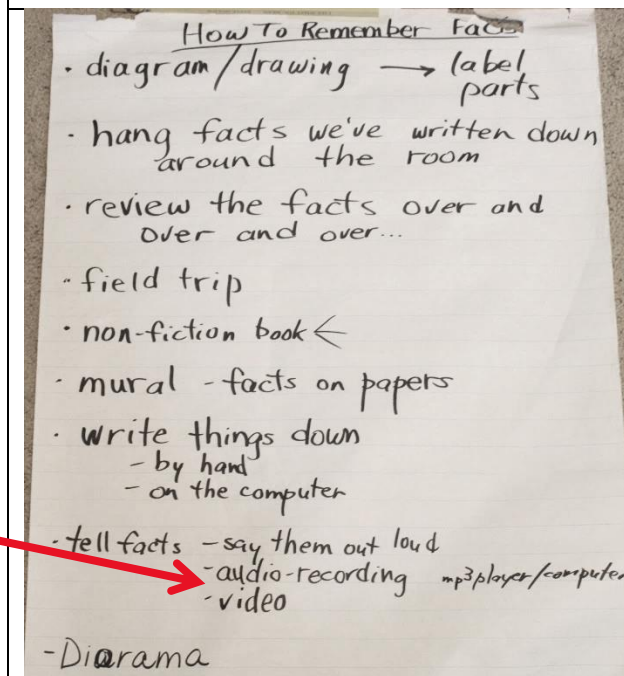 How To Remember Facts
· diagram/drawing → label
parts
· hang facts we've written down
around the room
· review the facts over and
over and over...
· field trip
· non-fiction book ←
· mural - facts on papers
· write things down
- by hand
- on the computer
· tell facts - say them out loud
- audio-recording mp3player/computer
- video
- Diarama